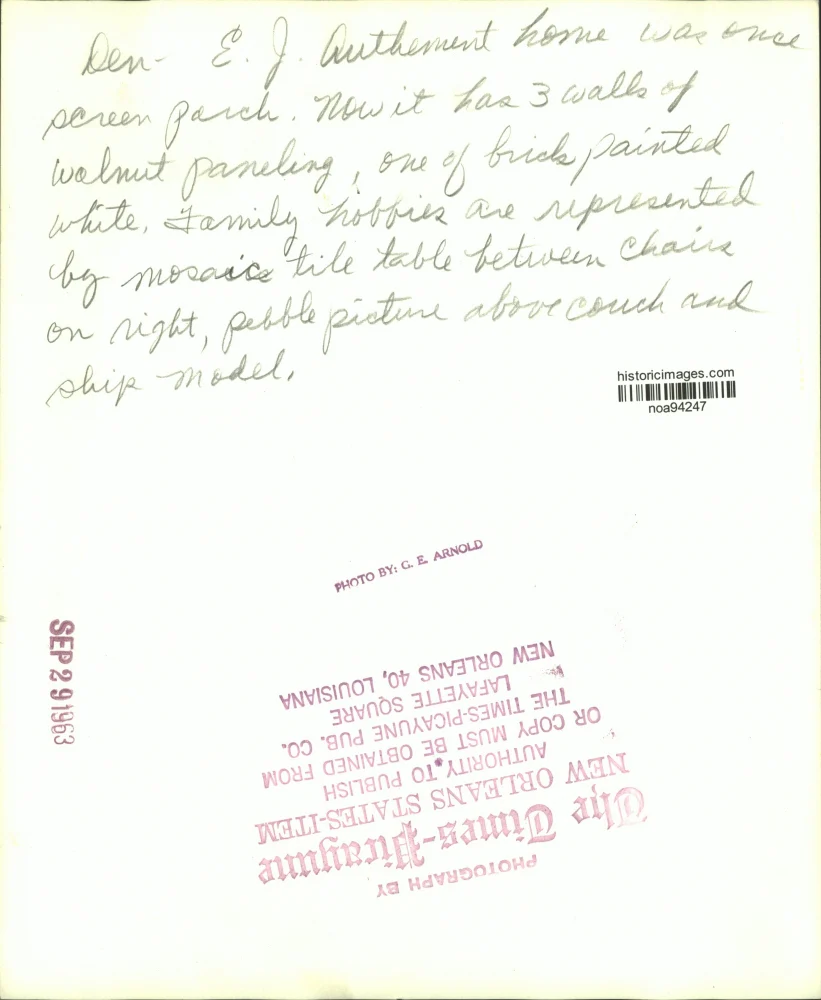 Den- E. J. Authement home was once
screen porch. Now it has 3 walls of
walnut paneling, one of brick painted
white. Family hobbies are represented
by mosaics tile table between chairs
on right, pebble picture above couch and
ship model.
historicimages.com
noa94247
PHOTO BY: G. E. ARNOLD
SEP 29 1963
PHOTOGRAPH BY
The Times-Picayune
NEW ORLEANS STATES-ITEM
AUTHORITY TO PUBLISH
OR COPY MUST BE OBTAINED FROM
THE TIMES-PICAYUNE PUB. CO.
LAFAYETTE SQUARE
NEW ORLEANS 40, LOUISIANA